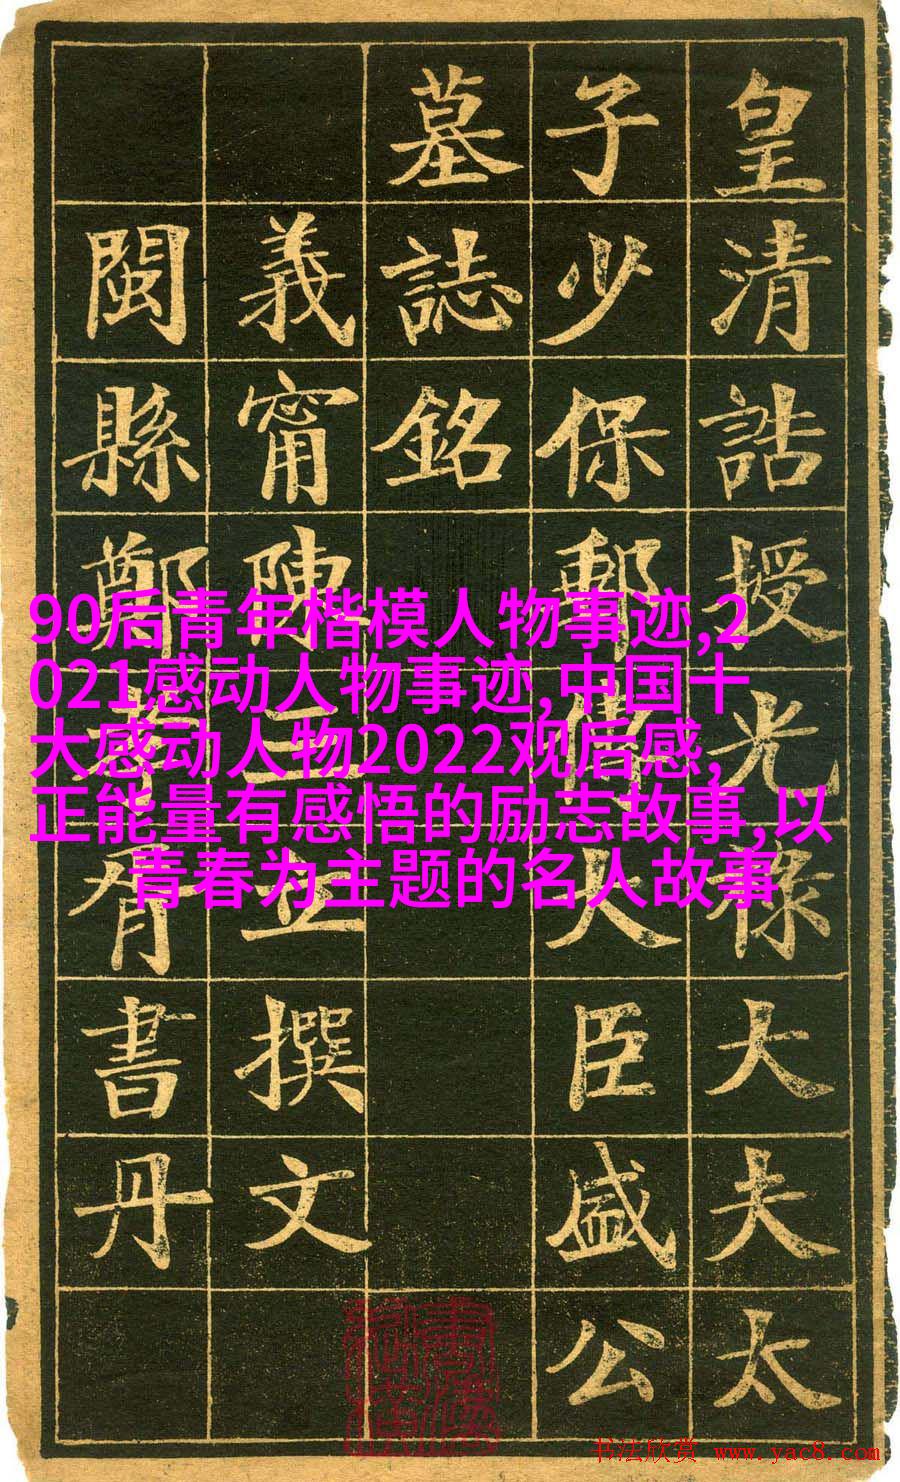 皇清誥授光祿大夫太
子少保郵傳大臣盛公
墓誌銘
義甯陳三立撰文
閩縣鄭孝胥書丹
90后青年楷模人物事迹,2
021感动人物事迹,中国十
大感动人物2022观后感,
正能量有感悟的励志故事,以
青春为主题的名人故事
书法欣赏 www.yac8.com